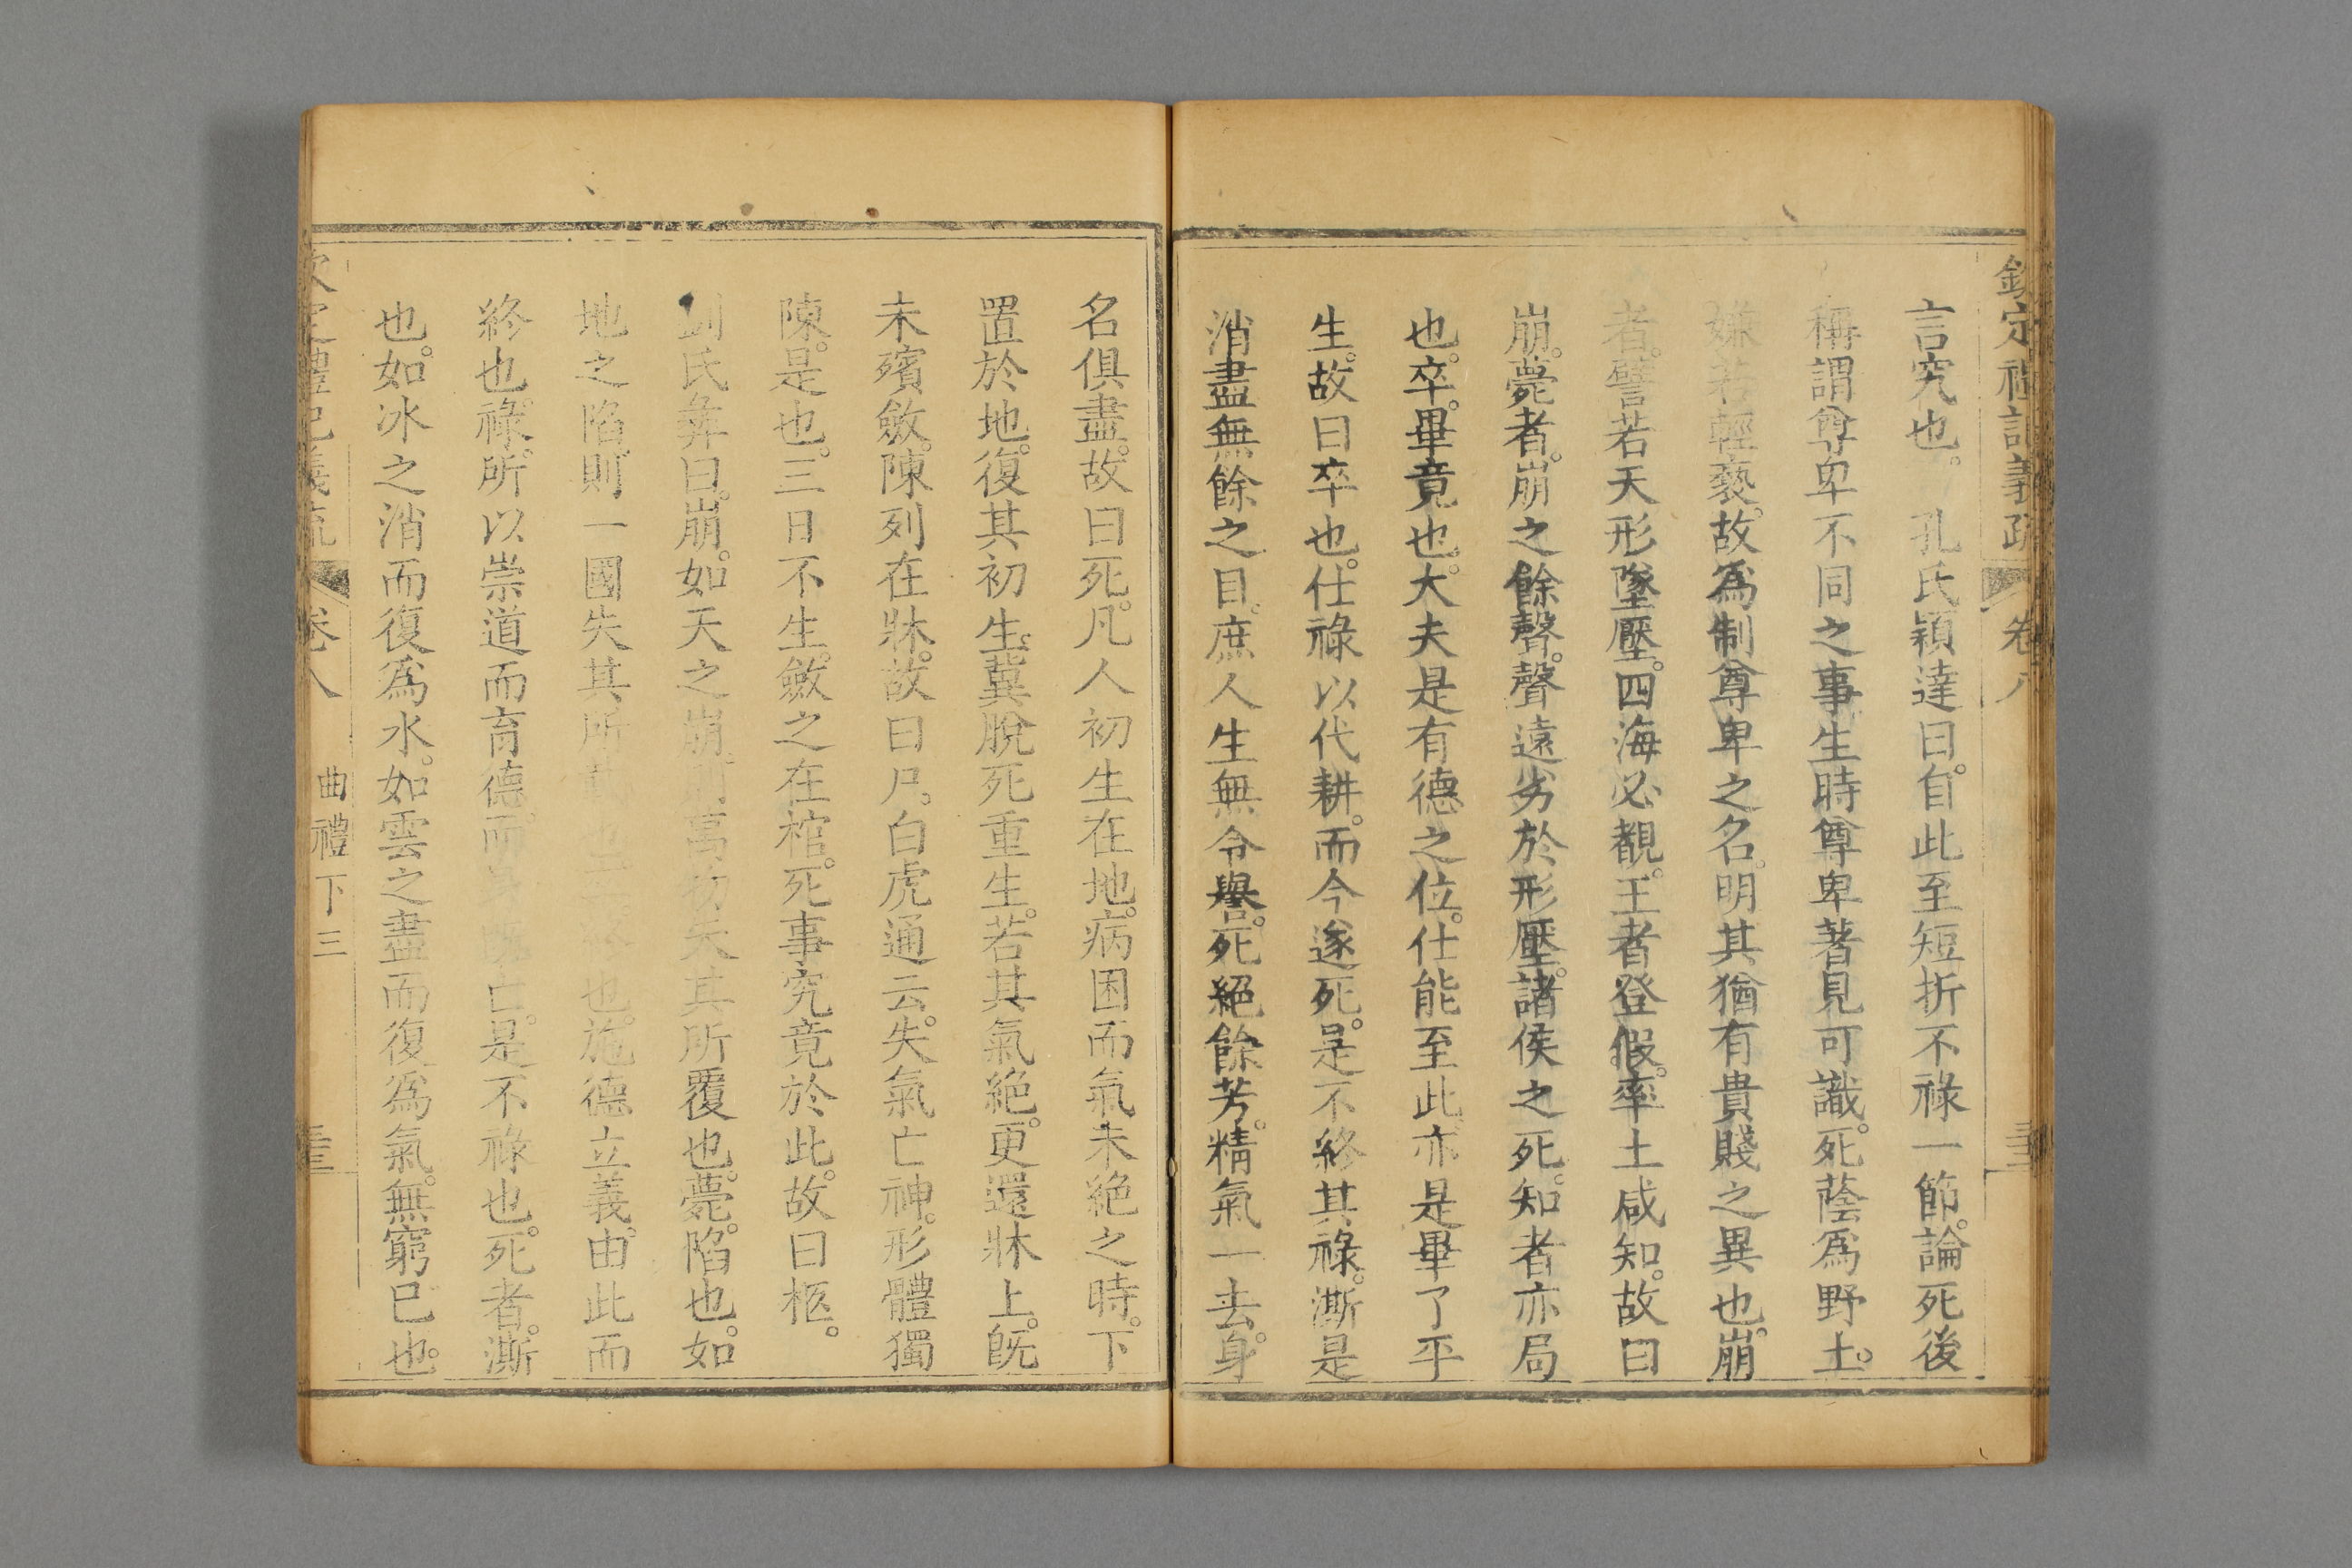 欽定禮記義疏 卷八
言究也。 孔氏穎達曰。自此至短折不祿一節。論死後
稱謂尊卑不同之事生時尊卑著見可識。死蔭爲野土。
嫌若輕褻。故爲制尊卑之名。明其猶有貴賤之異也。崩
者。譬若天形墜壓。四海必覩。王者登假。率土咸知。故曰
崩。薨者。崩之餘聲。聲遠劣於形壓。諸侯之死。知者亦局
也。卒。畢竟也。大夫是有德之位。仕能至此。亦是畢了平
生。故曰卒也。仕祿以代耕。而今遂死。是不終其祿。澌是
消盡無餘之目。庶人生無令譽。死絕餘芳。精氣一去。身
名俱盡。故曰死。凡人初生在地。病困而氣未絕之時。下
置於地。復其初生。冀脫死重生。若其氣絕。更還牀上。旣
未殯斂。陳列在牀。故曰尸。白虎通云。失氣亡神。形體獨
陳。是也。三日不生。斂之在棺。死事究竟於此。故曰柩。
劉氏彝曰。崩。如天之崩。則萬物失其所覆也。薨。陷也。如
地之陷。則一國失其所也。施德立義。由此而
終也。祿。所以崇道而育德。而旣亡。是不祿也。死者。澌
也。如冰之消而復爲水。如雲之盡而復爲氣。無窮已也。
欽定禮記義疏 卷八 曲禮下三